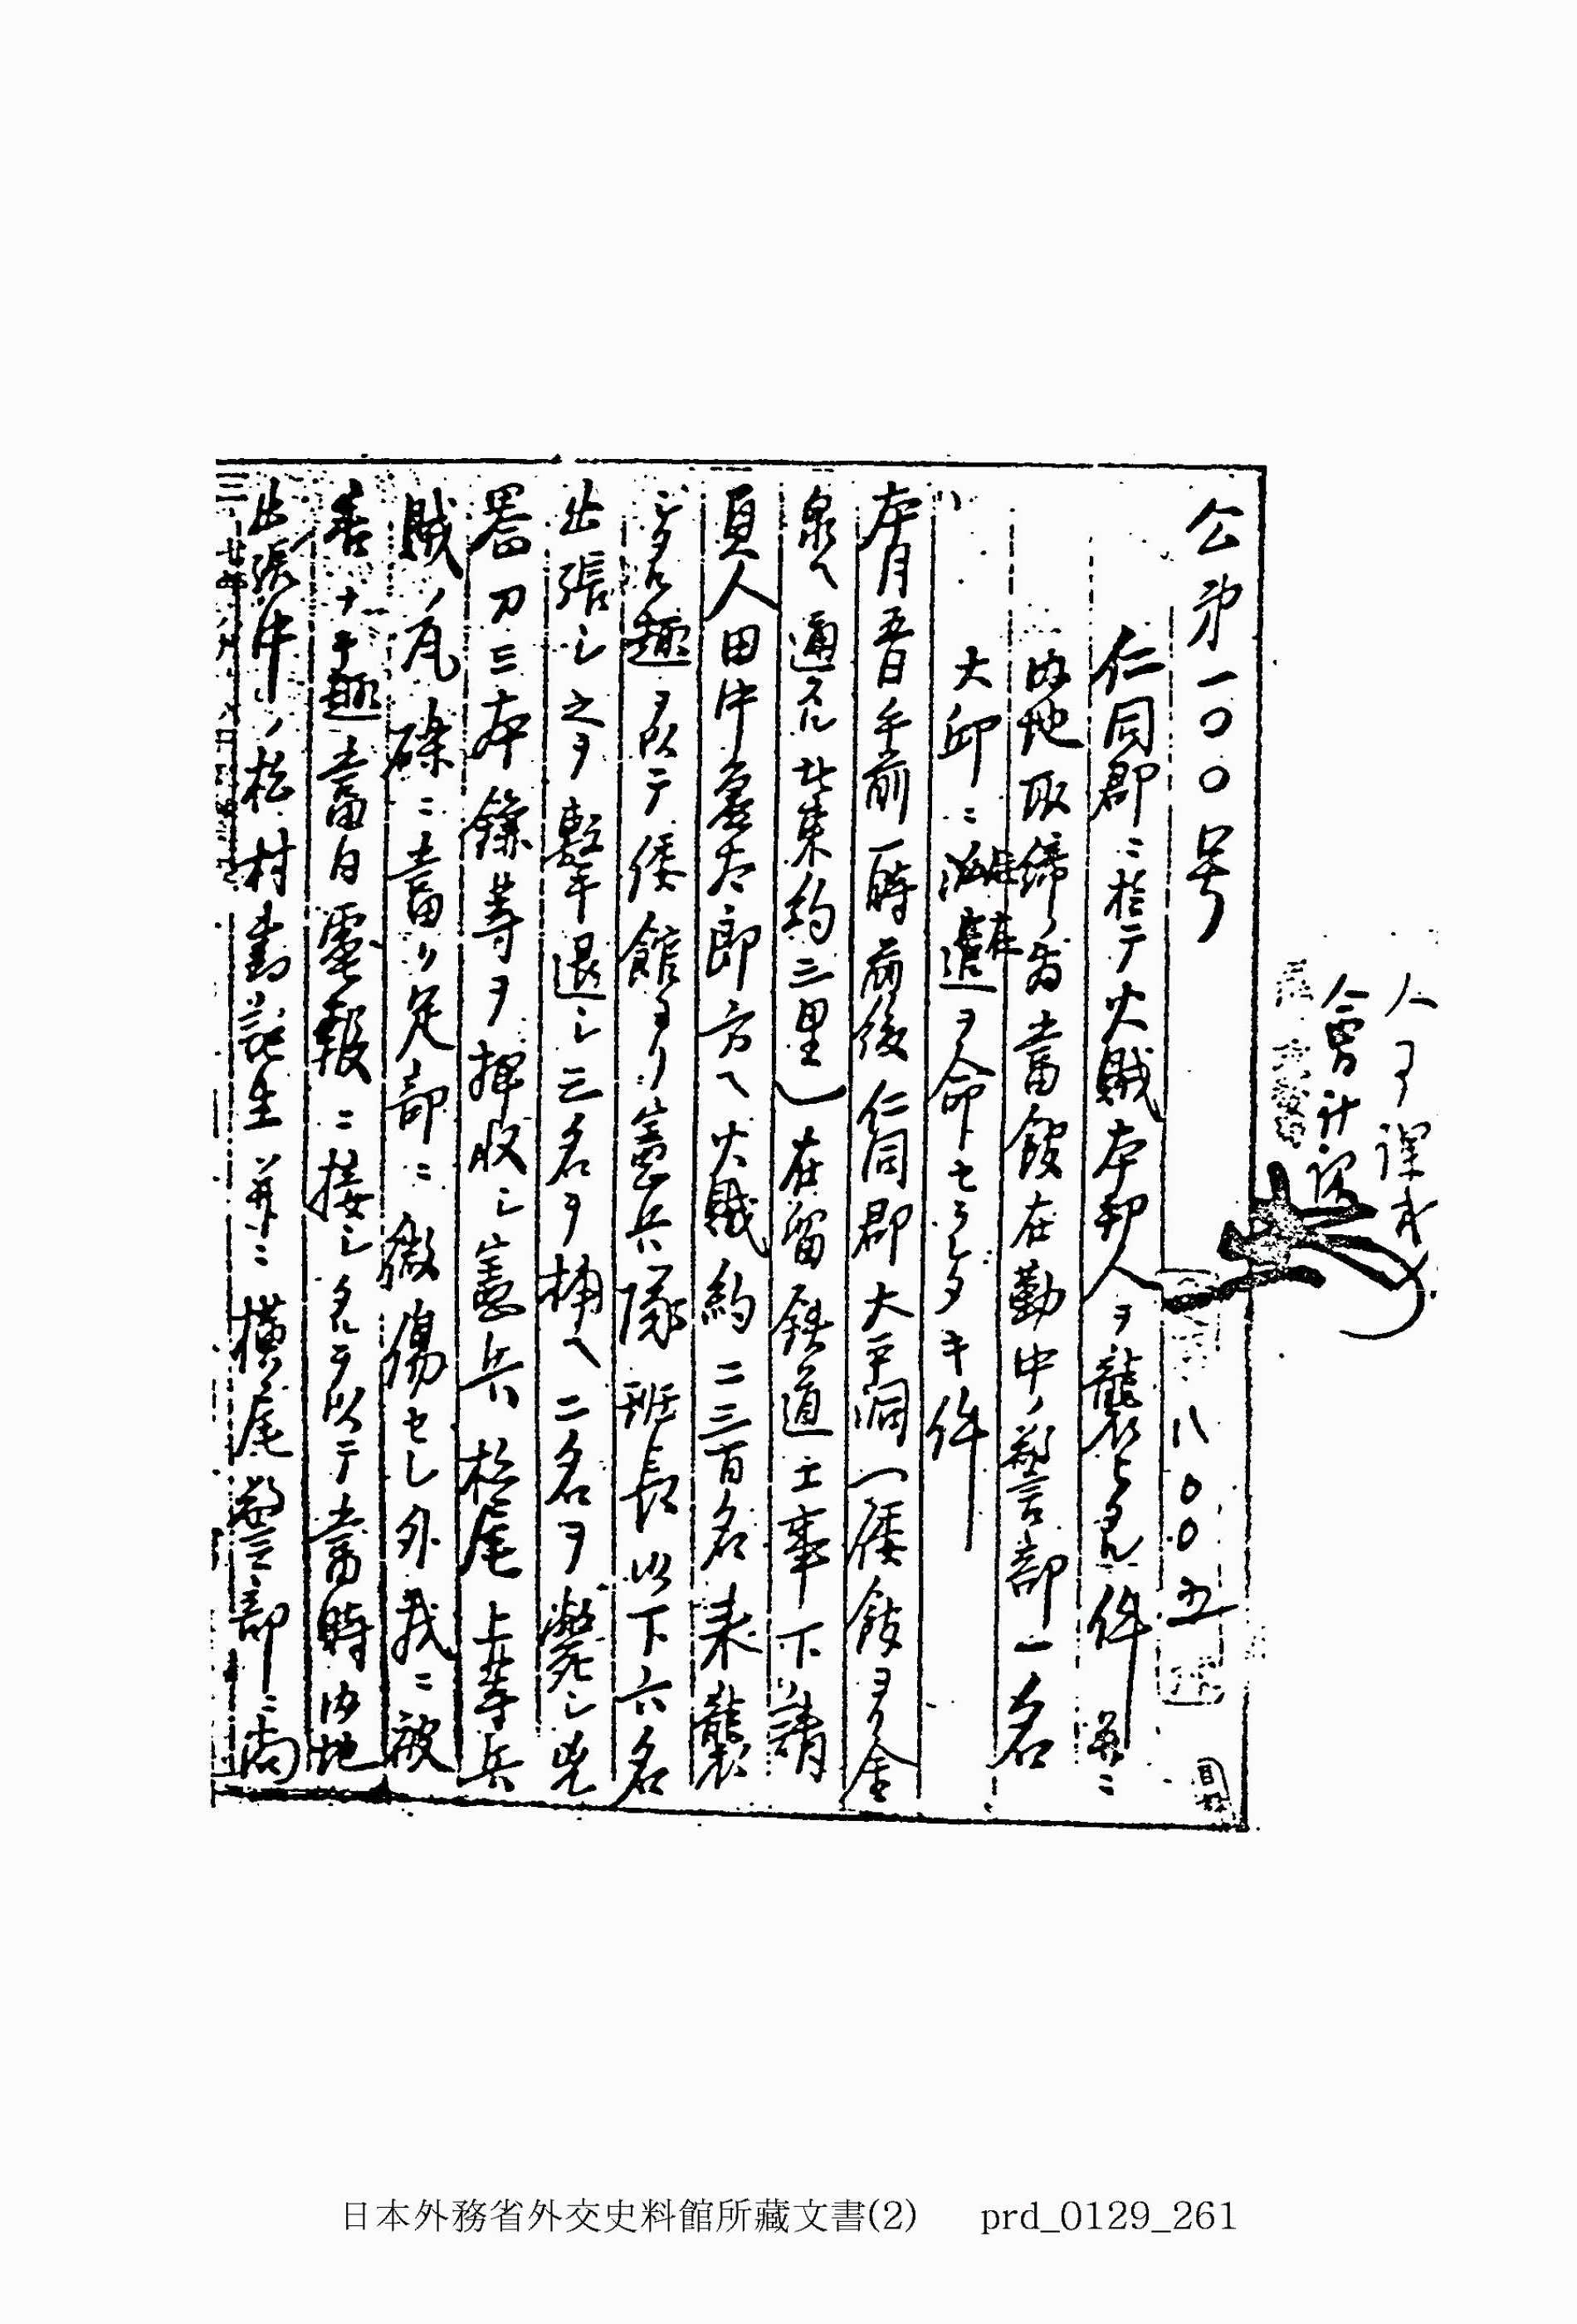 人事課
會計課
公第一〇〇号
八〇〇五
仁同郡ニ於テ火賊本邦人ヲ襲ヒタル件並ニ
内地取締ノ為當館在勤中ノ警部一名
大邱ニ派遣ヲ命セラレタキ件
本月五日午前一時前後仁同郡大平洞(倭館ヨリ金
泉ヘ通スル北東約三里)在留鉄道工事下請
負人田中慶太郎方ヘ火賊約二三百名来襲
シタル趣ヲ以テ倭館ヨリ憲兵隊班長以下六名
出張シ之ヲ撃退シ三名ヲ捕ヘ二名ヲ斃シ兇
器刀三本鎌等ヲ押収シ憲兵松尾上等兵
賊ノ瓦礫ニ當リ足部ニ微傷セシ外我ニ被
害ナキ趣當日電報ニ接シタルヲ以テ當時内地
出張中ノ松村書記生並ニ横尾警部ニ向
日本外務省外交史料館所藏文書(2) prd_0129_261